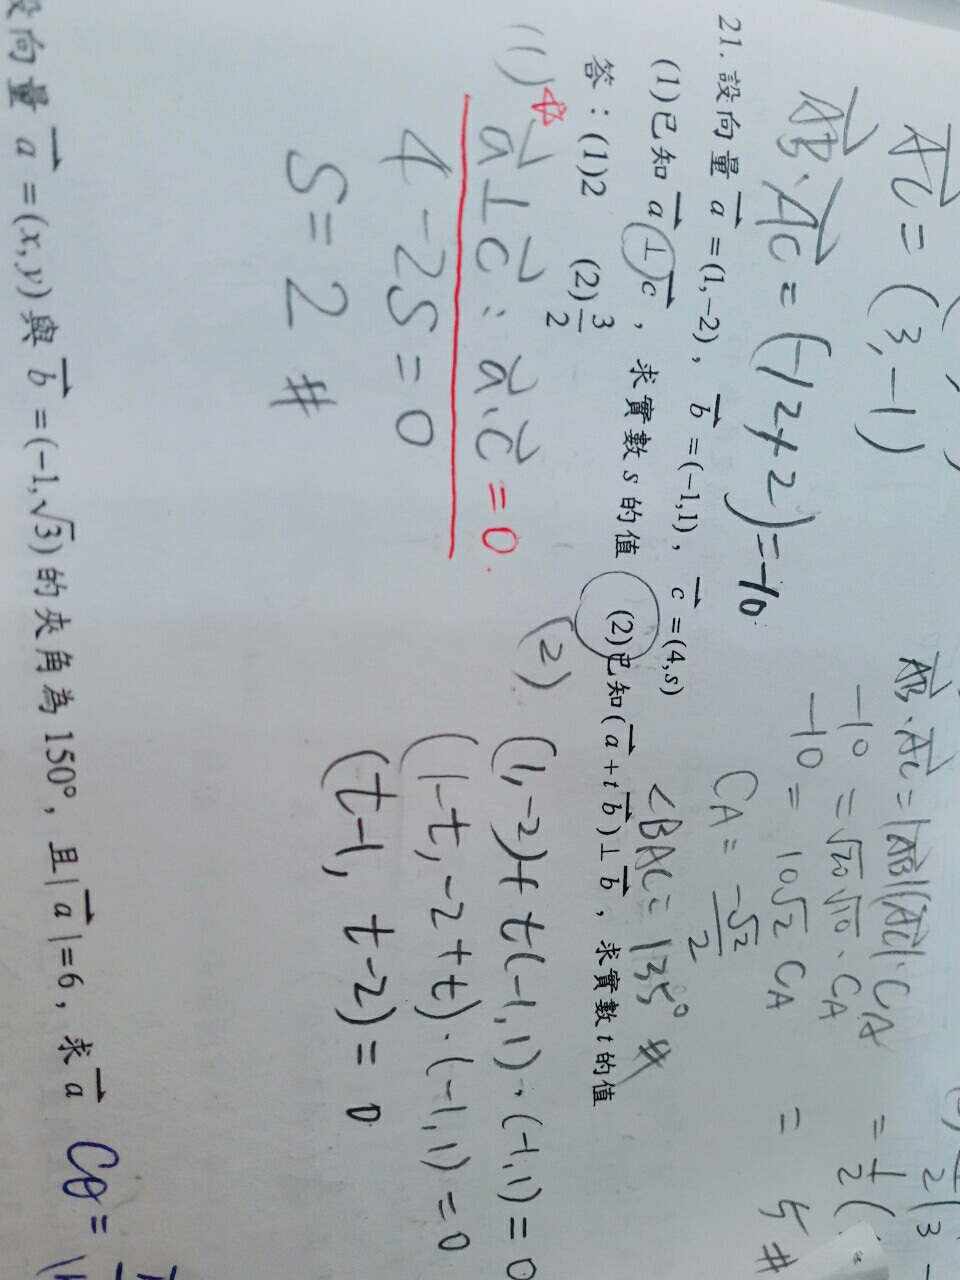 AC = (3,-1)
AB·AC = (-12+2) = -10
AB·AC = |AB||AC|·CA
-10 = √20 √10 · CA
-10 = 10√2 CA
CA = -√2/2
∠BAC = 135° #
= 1/2
= 5 #
21. 設向量 a =(1,-2)，b =(-1,1)，c =(4,s)
(1)已知 a ⊥ c，求實數 s 的值 (2)已知( a + t b )⊥ b，求實數 t 的值
答：(1)2 (2)3/2
(1) a⊥c : a·c = 0.
4-2s=0
s=2 #
(2) (1,-2)+t(-1,1)·(-1,1)=0
(1-t,-2+t)·(-1,1)=0
(t-1, t-2)=0
向量 a =(x,y)與 b =(-1,√3)的夾角為150°，且| a |=6，求 a
Cθ =